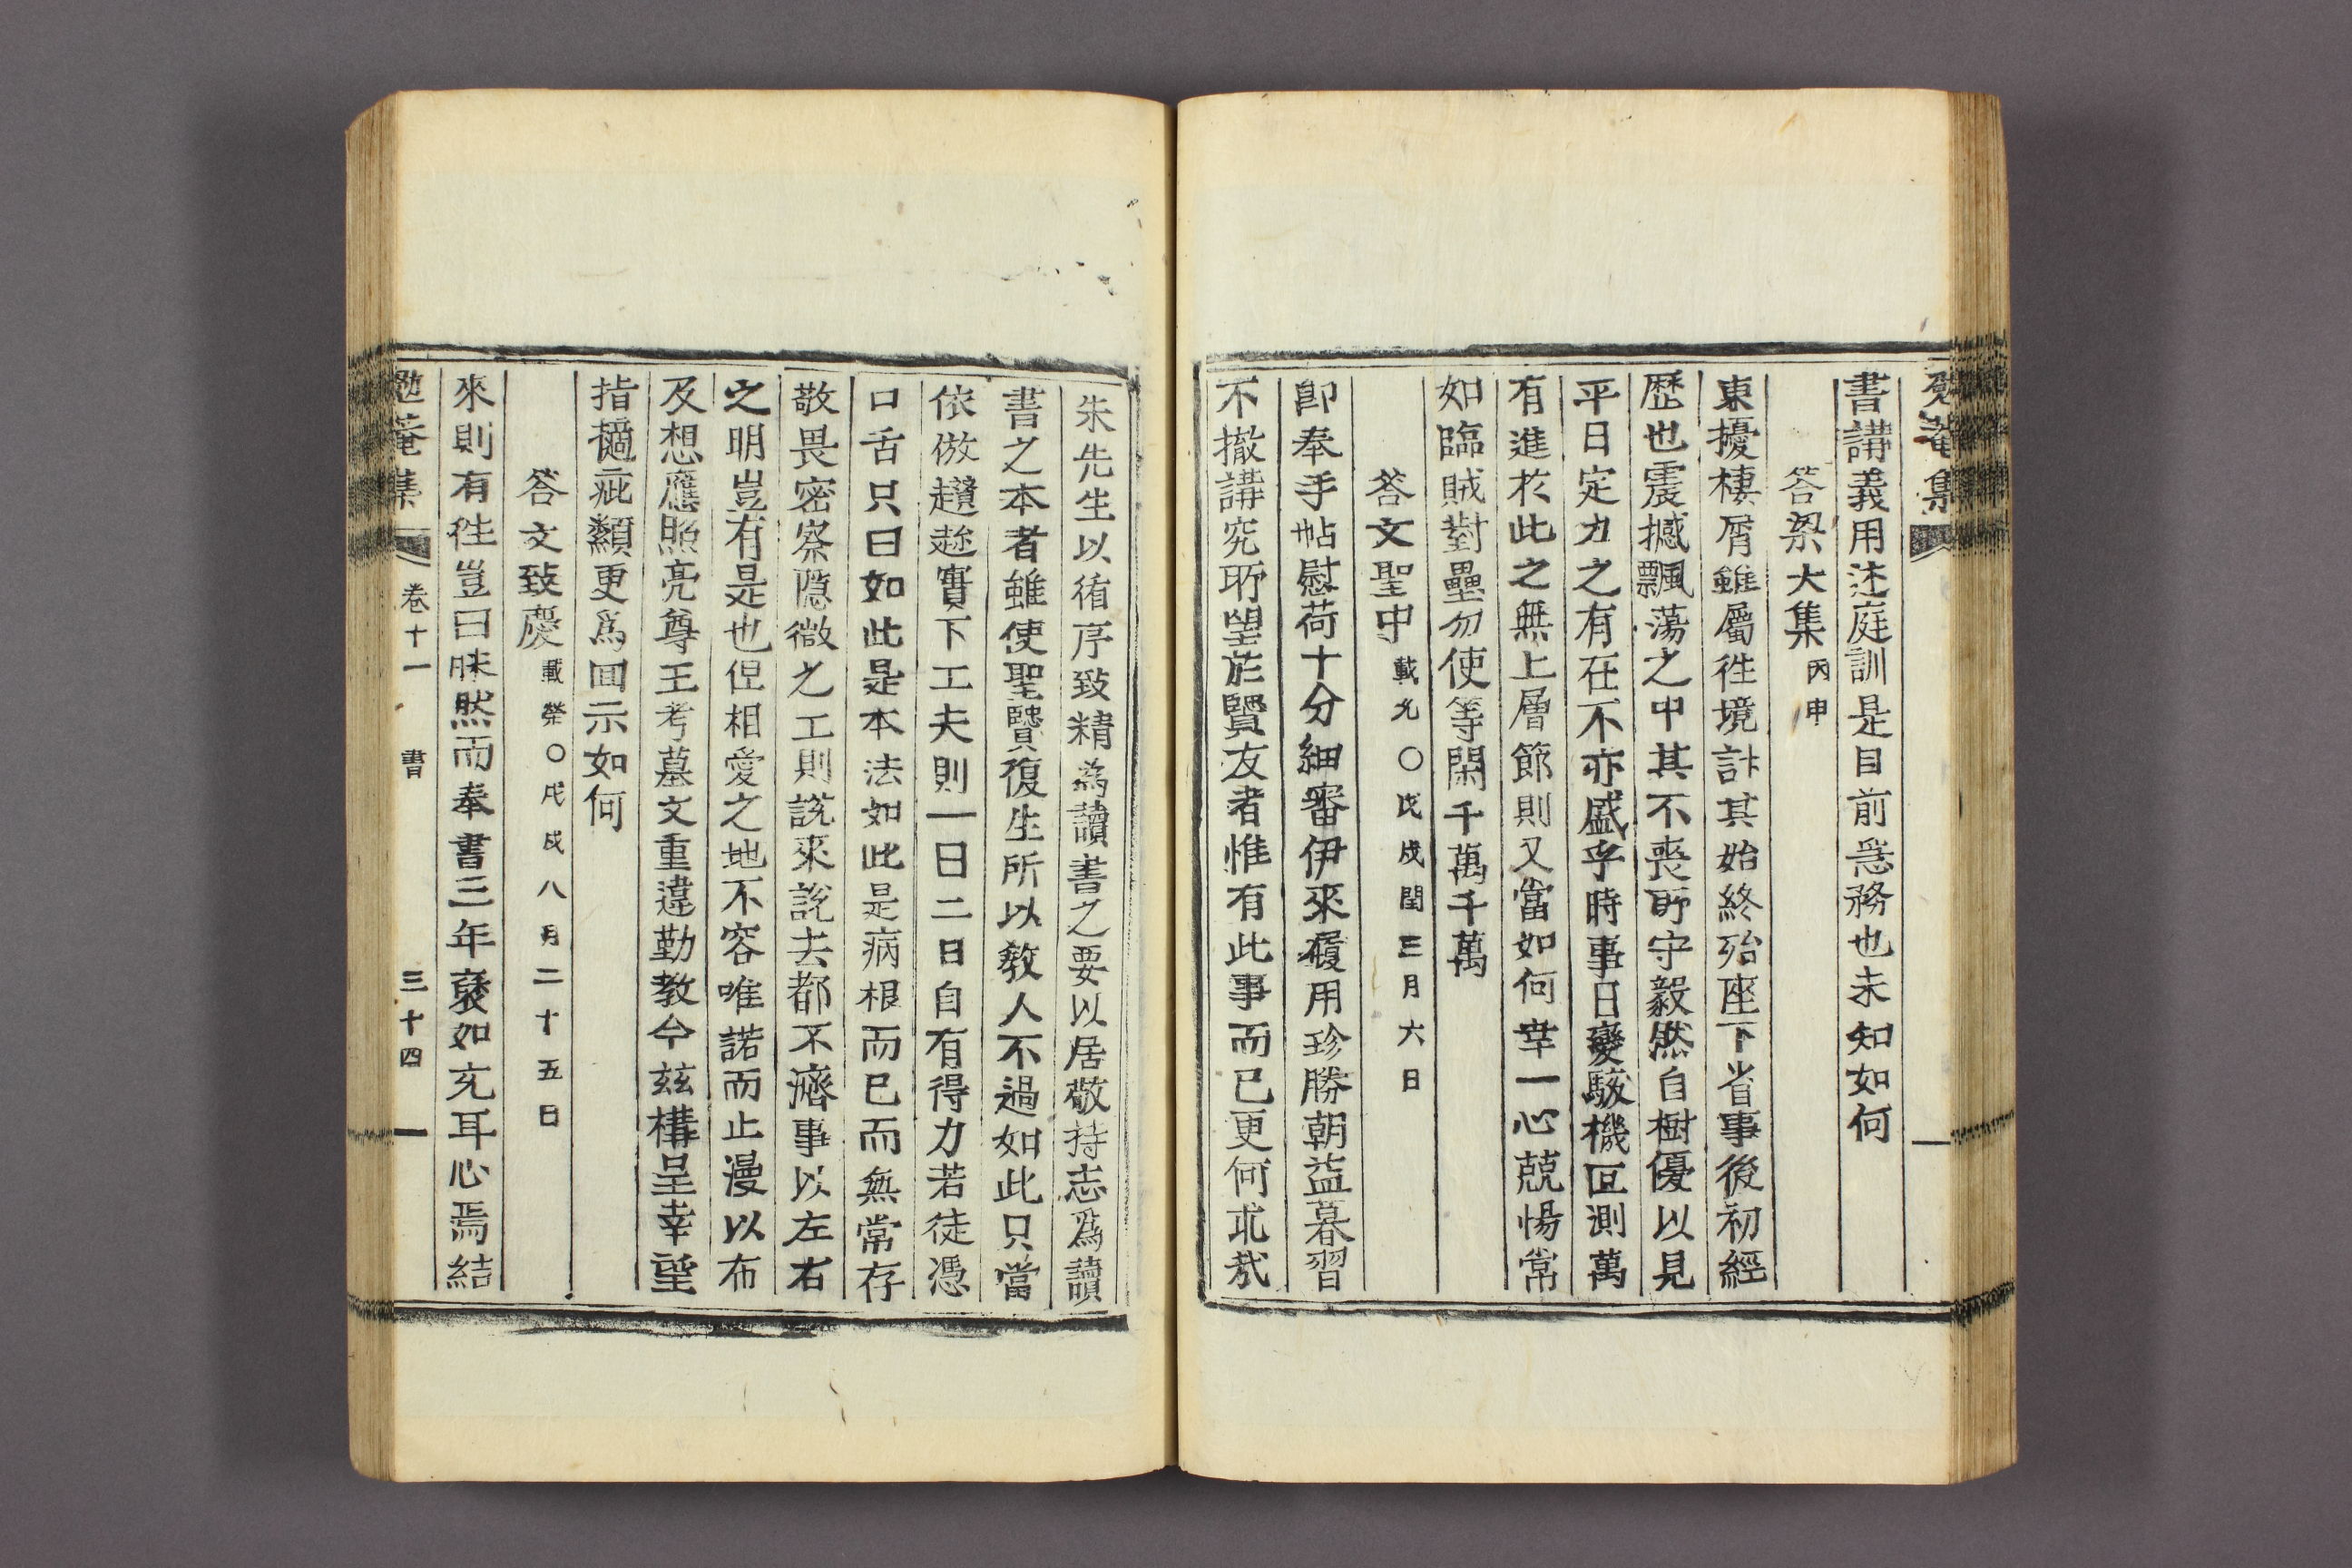 勉菴集
書講義用述庭訓是目前急務也未知如何
答梁大集丙申
東擾棲屑雖屬徃境計其始終殆座下省事後初經
歷也震撼飄蕩之中其不喪所守毅然自樹優以見
平日定力之有在不亦盛乎時事日變駭機叵測萬
有進於此之無上層節則又當如何幸一心兢惕常
如臨賊對壘勿使等閑千萬千萬
答文聖中載光○戊戌閏三月六日
卽奉手帖慰荷十分細審伊來履用珍勝朝益暮習
不撤講究所望於賢友者惟有此事而已更何求哉
朱先生以循序致精爲讀書之要以居敬持志爲讀
書之本者雖使聖賢復生所以敎人不過如此只當
依倣趲趂實下工夫則一日二日自有得力若徒憑
口舌只曰如此是本法如此是病根而已而無常存
敬畏密察隱微之工則說來說去都不濟事以左右
之明豈有是也但相愛之地不容唯諾而止漫以布
及想應照亮尊王考墓文重違勤教今玆構呈幸望
指擿疵纇更爲回示如何
答文致慶載榮○戊戌八月二十五日
來則有徃豈曰昧然而奉書三年褎如充耳心焉結
勉菴集 卷十一 書 三十四